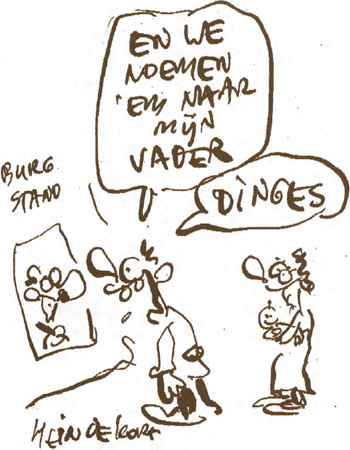 EN WE
NOEMEN
'EM NAAR
MIJN
VADER
DINGES
BURG.
STAND
HEIN DE KORT